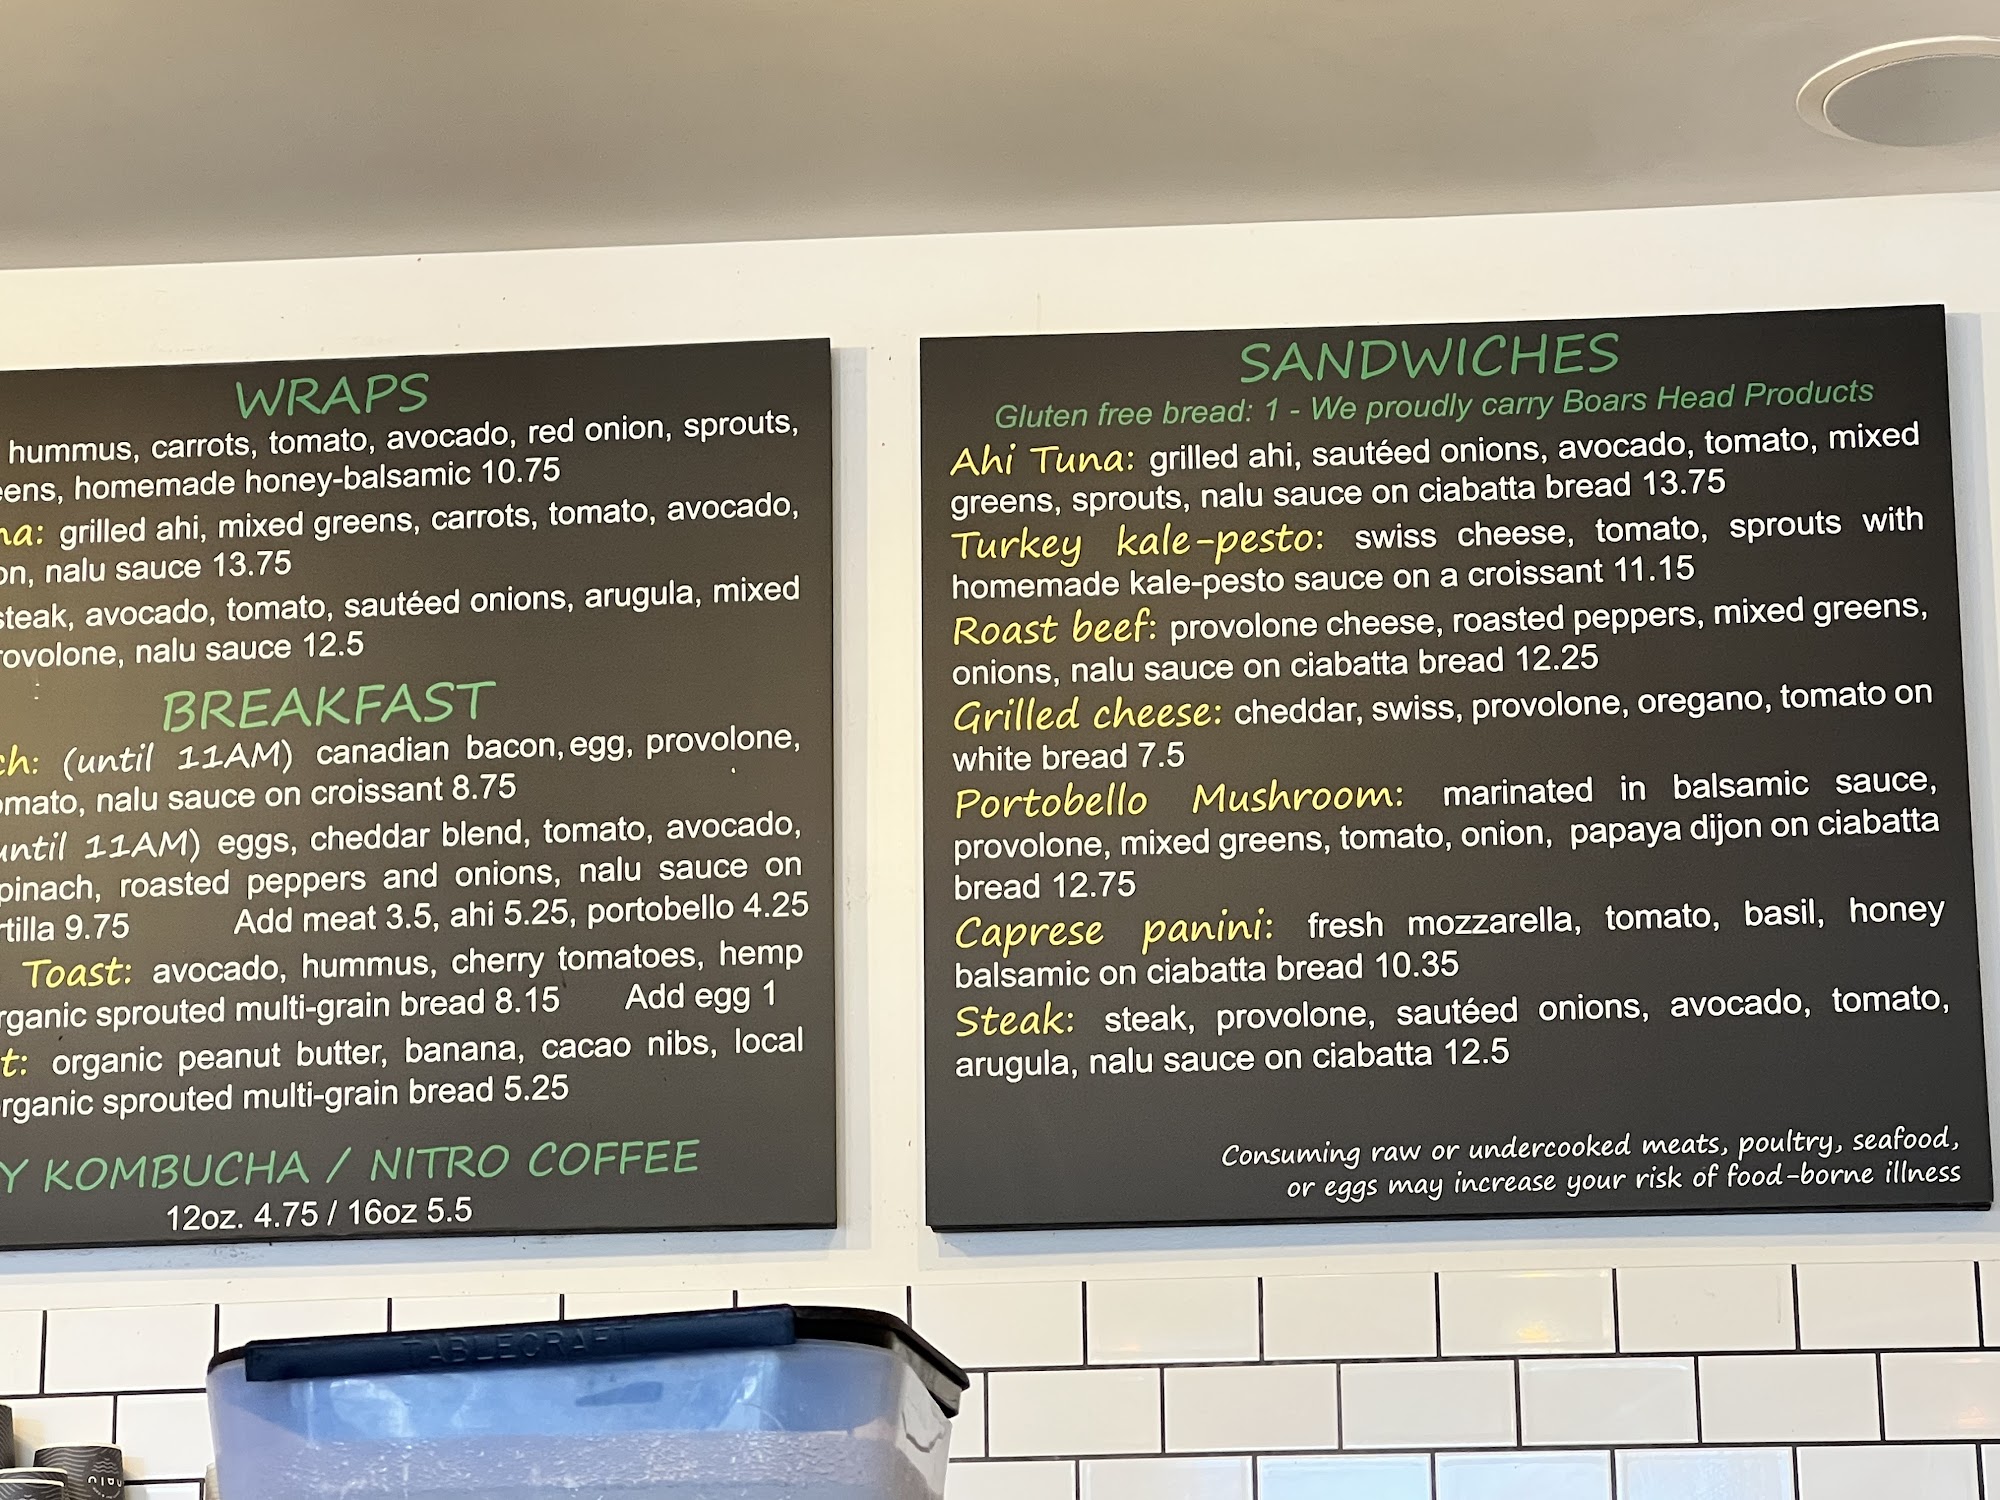 WRAPS
hummus, carrots, tomato, avocado, red onion, sprouts,
homemade honey-balsamic 10.75
grilled ahi, mixed greens, carrots, tomato, avocado,
nalu sauce 13.75
steak, avocado, tomato, sautéed onions, arugula, mixed
nalu sauce 12.5
BREAKFAST
(until 11AM) canadian bacon, egg, provolone,
nalu sauce on croissant 8.75
11AM) eggs, cheddar blend, tomato, avocado,
roasted peppers and onions, nalu sauce on
9.75 Add meat 3.5, ahi 5.25, portobello 4.25
Toast: avocado, hummus, cherry tomatoes, hemp
sprouted multi-grain bread 8.15 Add egg 1
organic peanut butter, banana, cacao nibs, local
sprouted multi-grain bread 5.25
KOMBUCHA / NITRO COFFEE
12oz. 4.75 / 16oz 5.5
SANDWICHES
Gluten free bread: 1 - We proudly carry Boars Head Products
Ahi Tuna: grilled ahi, sautéed onions, avocado, tomato, mixed
greens, sprouts, nalu sauce on ciabatta bread 13.75
Turkey kale-pesto: swiss cheese, tomato, sprouts with
homemade kale-pesto sauce on a croissant 11.15
Roast beef: provolone cheese, roasted peppers, mixed greens,
onions, nalu sauce on ciabatta bread 12.25
Grilled cheese: cheddar, swiss, provolone, oregano, tomato on
white bread 7.5
Portobello Mushroom: marinated in balsamic sauce,
provolone, mixed greens, tomato, onion, papaya dijon on ciabatta
bread 12.75
Caprese panini: fresh mozzarella, tomato, basil, honey
balsamic on ciabatta bread 10.35
Steak: steak, provolone, sautéed onions, avocado, tomato,
arugula, nalu sauce on ciabatta 12.5
Consuming raw or undercooked meats, poultry, seafood,
or eggs may increase your risk of food-borne illness
TABLECRAFT